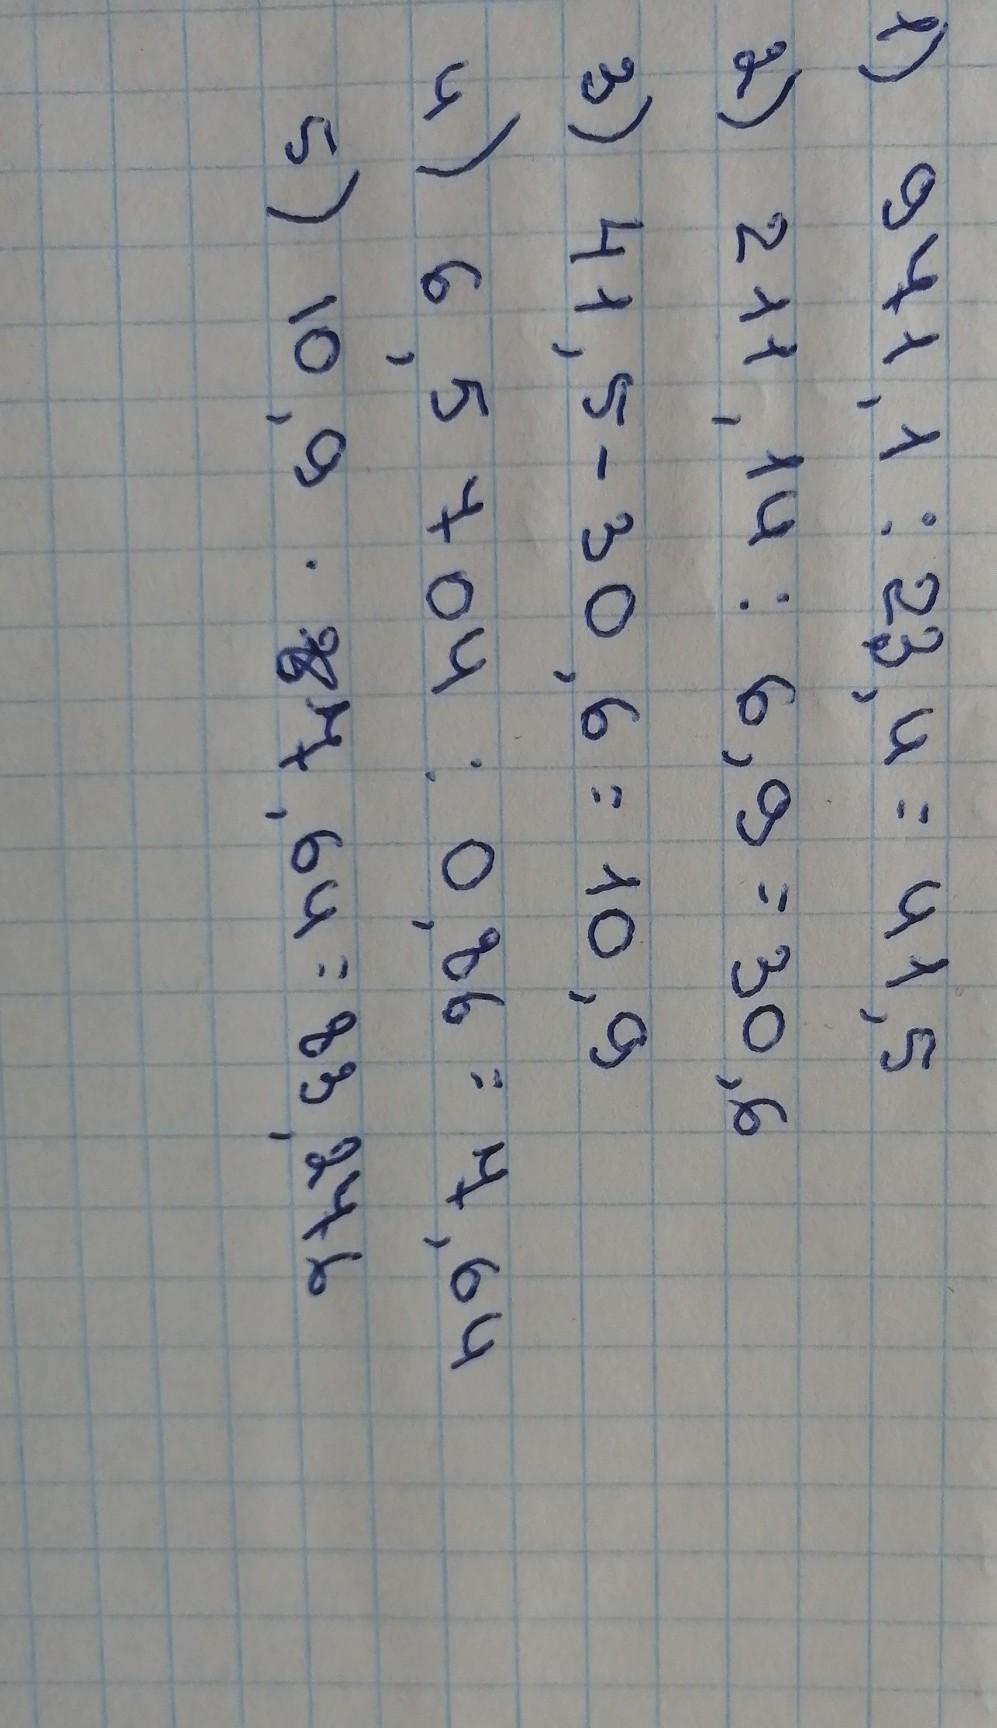 1) 971,1 : 23,4 = 41,5
2) 211,14 : 6,9 = 30,6
3) 41,5 - 30,6 = 10,9
4) 6,5704 : 0,86 = 7,64
5) 10,9 · 7,64 = 83,276